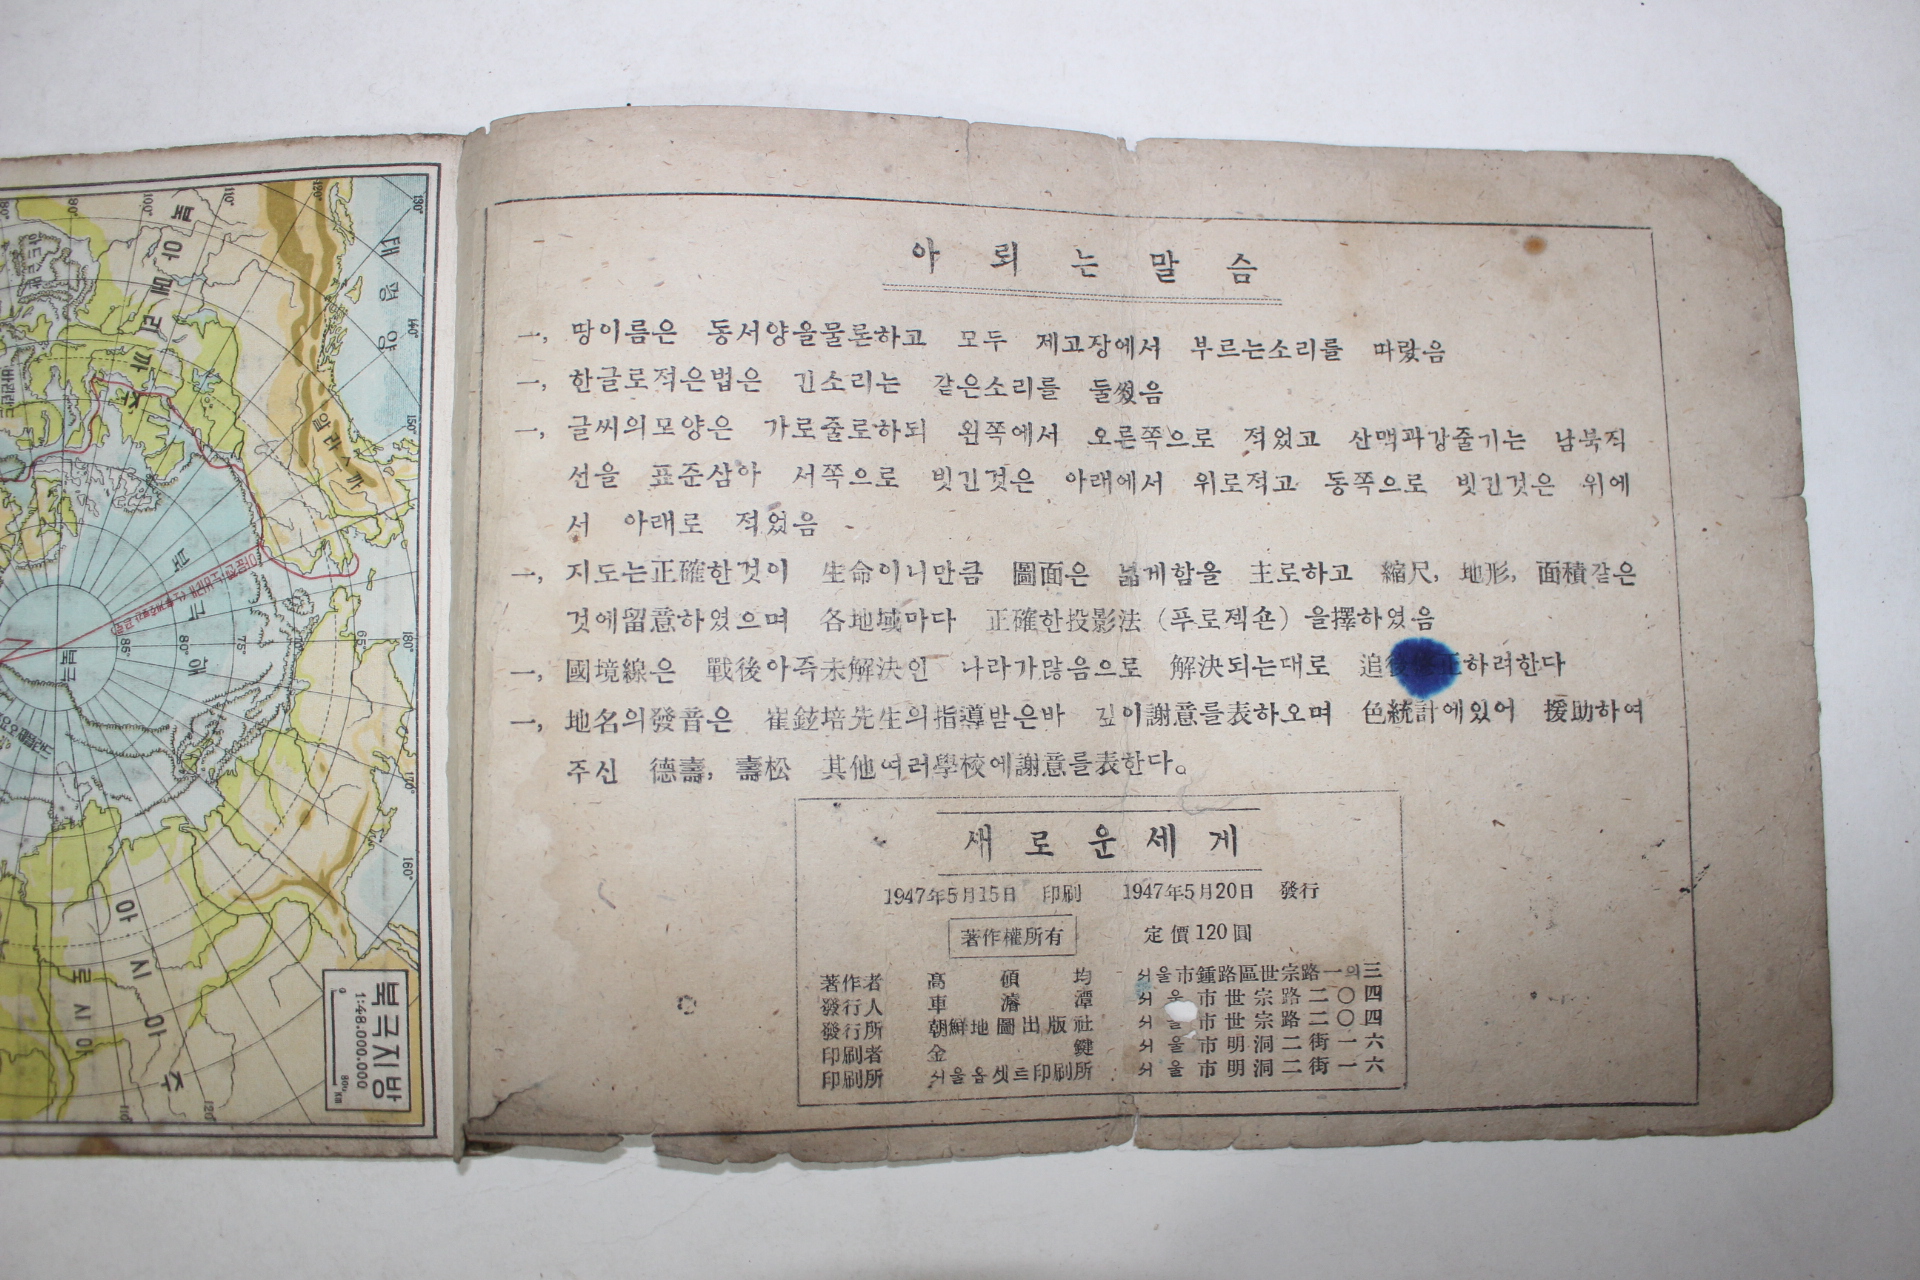 아뢰는말슴
一, 땅이름은 동서양을물론하고 모두 제고장에서 부르는소리를 따랐음
一, 한글로적은법은 긴소리는 같은소리를 둘썼음
一, 글씨의모양은 가로줄로하되 왼쪽에서 오른쪽으로 적었고 산맥과강줄기는 남북직
선을 표준삼아 서쪽으로 빗긴것은 아래에서 위로적고 동쪽으로 빗긴것은 위에
서 아래로 적었음
一, 지도는正確한것이 生命이니만큼 圖面은 넓게함을 主로하고 縮尺, 地形, 面積같은
것에留意하였으며 各地域마다 正確한投影法 (푸로젝숀) 을擇하였음
一, 國境線은 戰後아즉未解決인 나라가많음으로 解決되는대로 追後修正하려한다
一, 地名의發音은 崔鉉培先生의指導받은바 깊이謝意를表하오며 色統計에있어 援助하여
주신 德壽, 壽松 其他여러學校에謝意를表한다。
새로운세게
1947年5月15日 印刷 1947年5月20日 發行
著作權所有 定價120圓
著作者 高碩均 서울市鍾路區世宗路一의三
發行人 車濬潭 서울市世宗路二〇四
發行所 朝鮮地圖出版社 서울市世宗路二〇四
印刷者 金鍵 서울市明洞二街一六
印刷所 서울옵셋트印刷所 서울市明洞二街一六
북극지방
1:48.000.000
0 800 KM
북아메리까주
태평양
알라스까
북극해
북극
아시아주
로시아
80° 90° 100° 110° 120° 130° 140° 150° 160° 170° 180°
65° 70° 75° 80° 85°
110° 120°